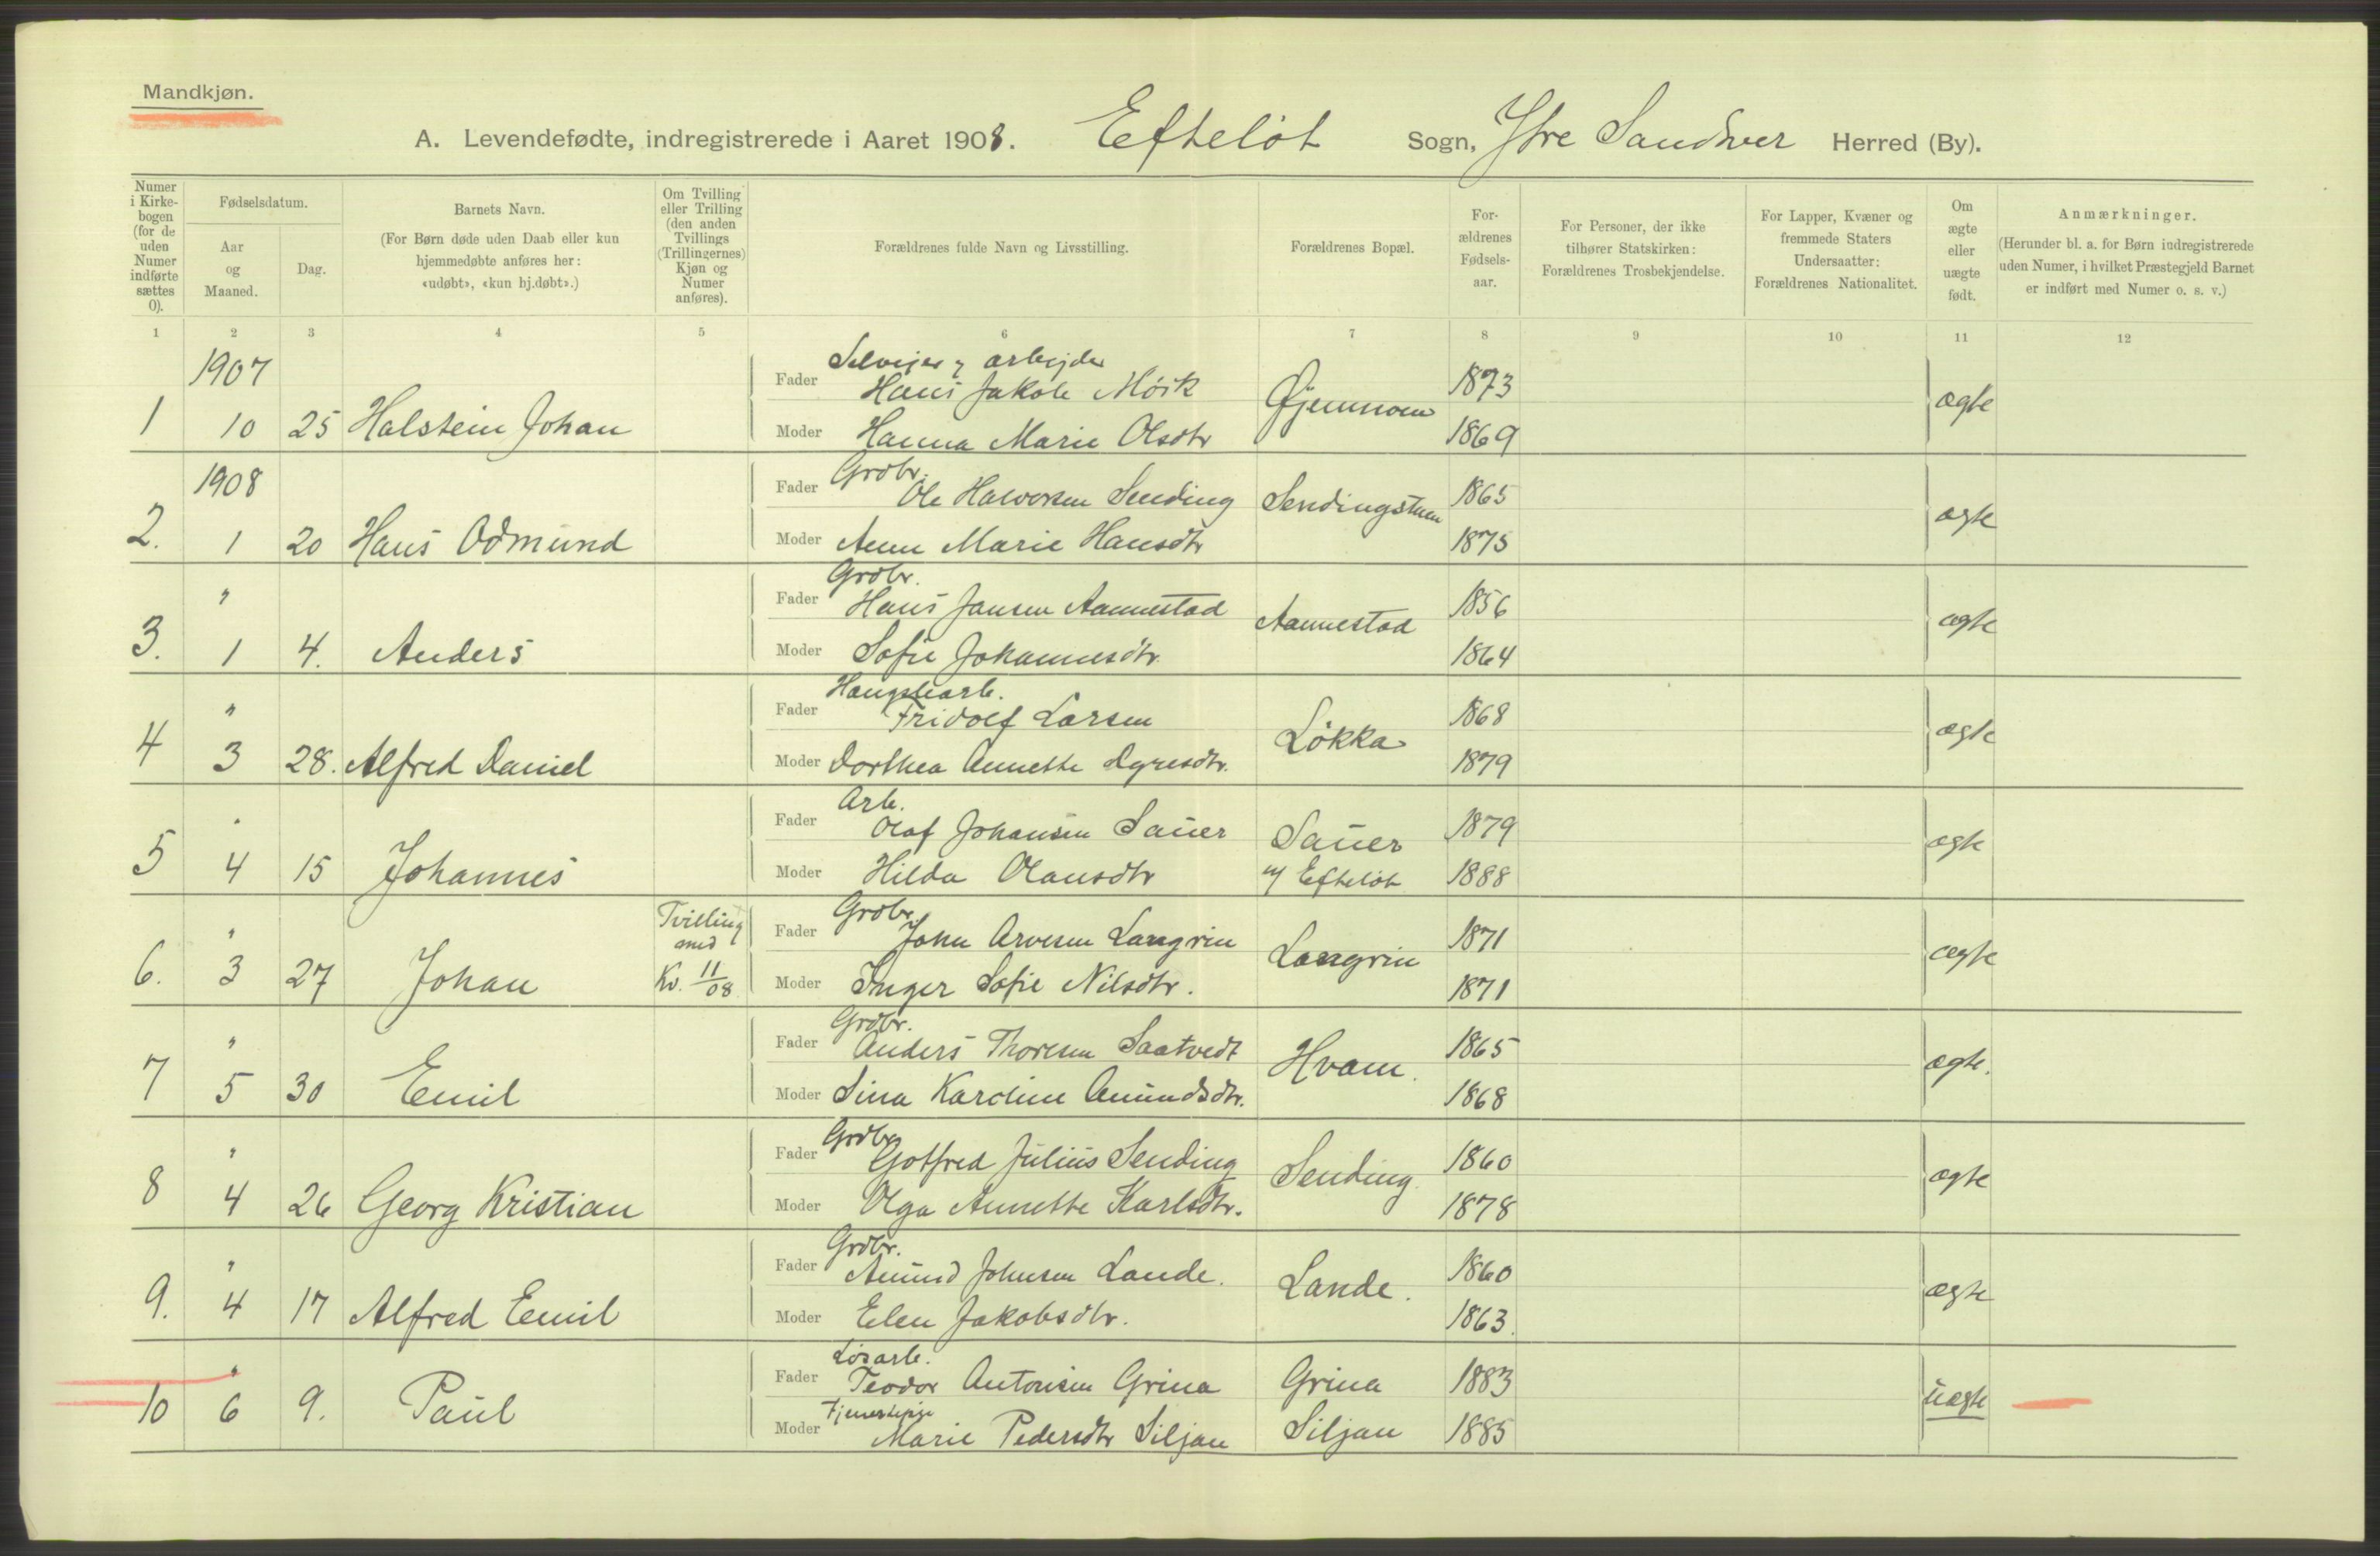 Mandkjøn.
A. Levendefødte, indregistrerede i Aaret 1908. Efteløt Sogn, Ytre Sandsver Herred (By).
Numer i Kirke-bogen (for de uden Numer indførte sættes 0).
Fødselsdatum.
Aar og Maaned.
Dag.
Barnets Navn.
(For Børn døde uden Daab eller kun hjemmedøbte anføres her: «udøbt», «kun hj.døbt».)
Om Tvilling eller Trilling (den anden Tvillings (Trillingernes) Kjøn og Numer anføres).
Forældrenes fulde Navn og Livsstilling.
Forældrenes Bopæl.
For-ældrenes Fødsels-aar.
For Personer, der ikke tilhører Statskirken: Forældrenes Trosbekjendelse.
For Lapper, Kvæner og fremmede Staters Undersaatter: Forældrenes Nationalitet.
Om ægte eller uægte født.
Anmærkninger.
(Herunder bl. a. for Børn indregistrerede uden Numer, i hvilket Præstegjeld Barnet er indført med Numer o. s. v.)
1 2 3 4 5 6 7 8 9 10 11 12
1907 Selvejer & arbejder
Fader Hans Jakob Mörk 1873
1 10 25 Halstein Johan Moder Hanna Marie Olsdtr 1869 ægte
1908 Grdbr.
Fader Ole Halvorsen Sending Sendingstuen 1865
2. 1 20 Hans Odmund Moder Anne Marie Hansdtr 1875 ægte
Grdbr.
" Fader Hans Jansen Aannestad Aannestad 1856
3. 1 4. Anders Moder Sofie Johannesdtr. 1864 ægte
" Fader Fridolf Larsen Lökka 1868
4 3 28. Alfred Daniel Moder Dorthea Annette Dyresdtr. 1879 ægte
Arb.
" Fader Olaf Johansen Sauer Sauer 1879
5 4 15 Johannes Moder Hilda Olausdtr u/ Efteløt 1888 ægte
Grdbr.
" Tvilling med Fader John Arvesen Langrin Langrin 1871
6. 3 27 Johan Kv. 11/08 Moder Inger Sofie Nilsdtr. 1871 ægte
Grdbr.
" Fader Anders Thoresen Saatvedt Hvam. 1865
7 5 30 Emil Moder Sina Karoline Amundsdtr. 1868 ægte.
Grdbr
" Fader Gotfred Julius Sending Sending. 1860
8 4 26 Georg Kristian Moder Olga Annette Karlsdtr. 1878 ægte
Grdbr.
" Fader Amund Johnsen Lande. Lande. 1860
9. 4 17 Alfred Emil Moder Elen Jakobsdtr. 1863. ægte
Løsarb.
" Fader Teodor Antonsen Grina Grina 1883
Tjenestepige
10 6 9. Paul Moder Marie Pedersdtr Siljan Siljan 1885 uægte